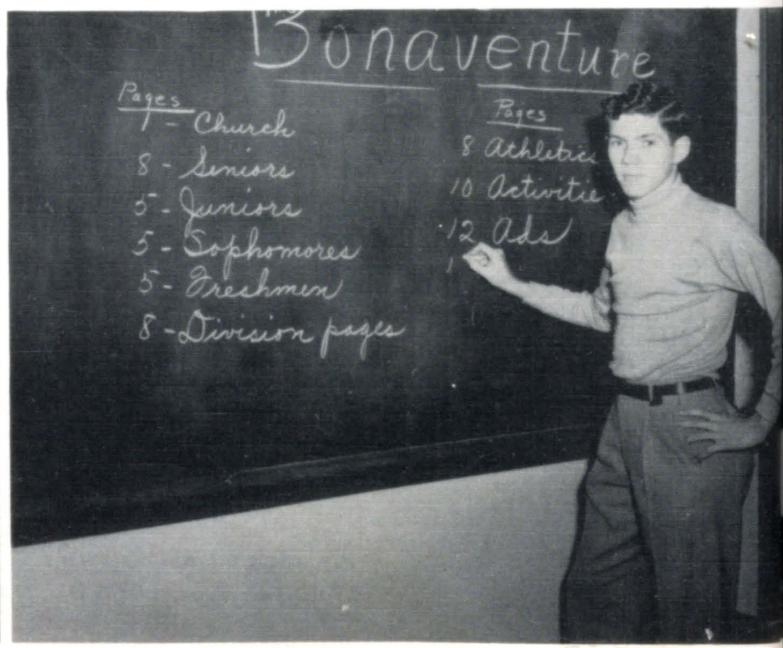 Bonaventure
Pages
1 - Church
8 - Seniors
5 - Juniors
5 - Sophomores
5 - Freshmen
8 - Division pages
Pages
8 Athletics
10 Activitie
12 Ads
1